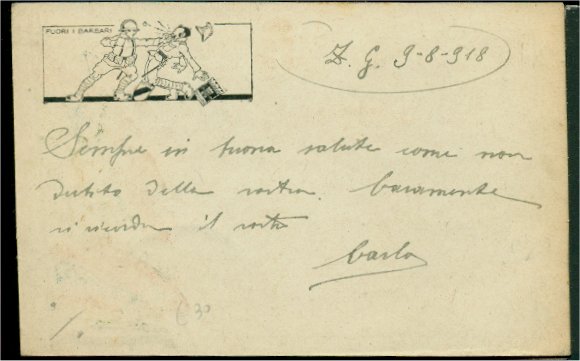 FUORI I BARBARI
Z. G. 9-8-918
Sempre in buona salute come non
dubito della vostra. Caramente
vi ricorda il vostro
Carlo
30